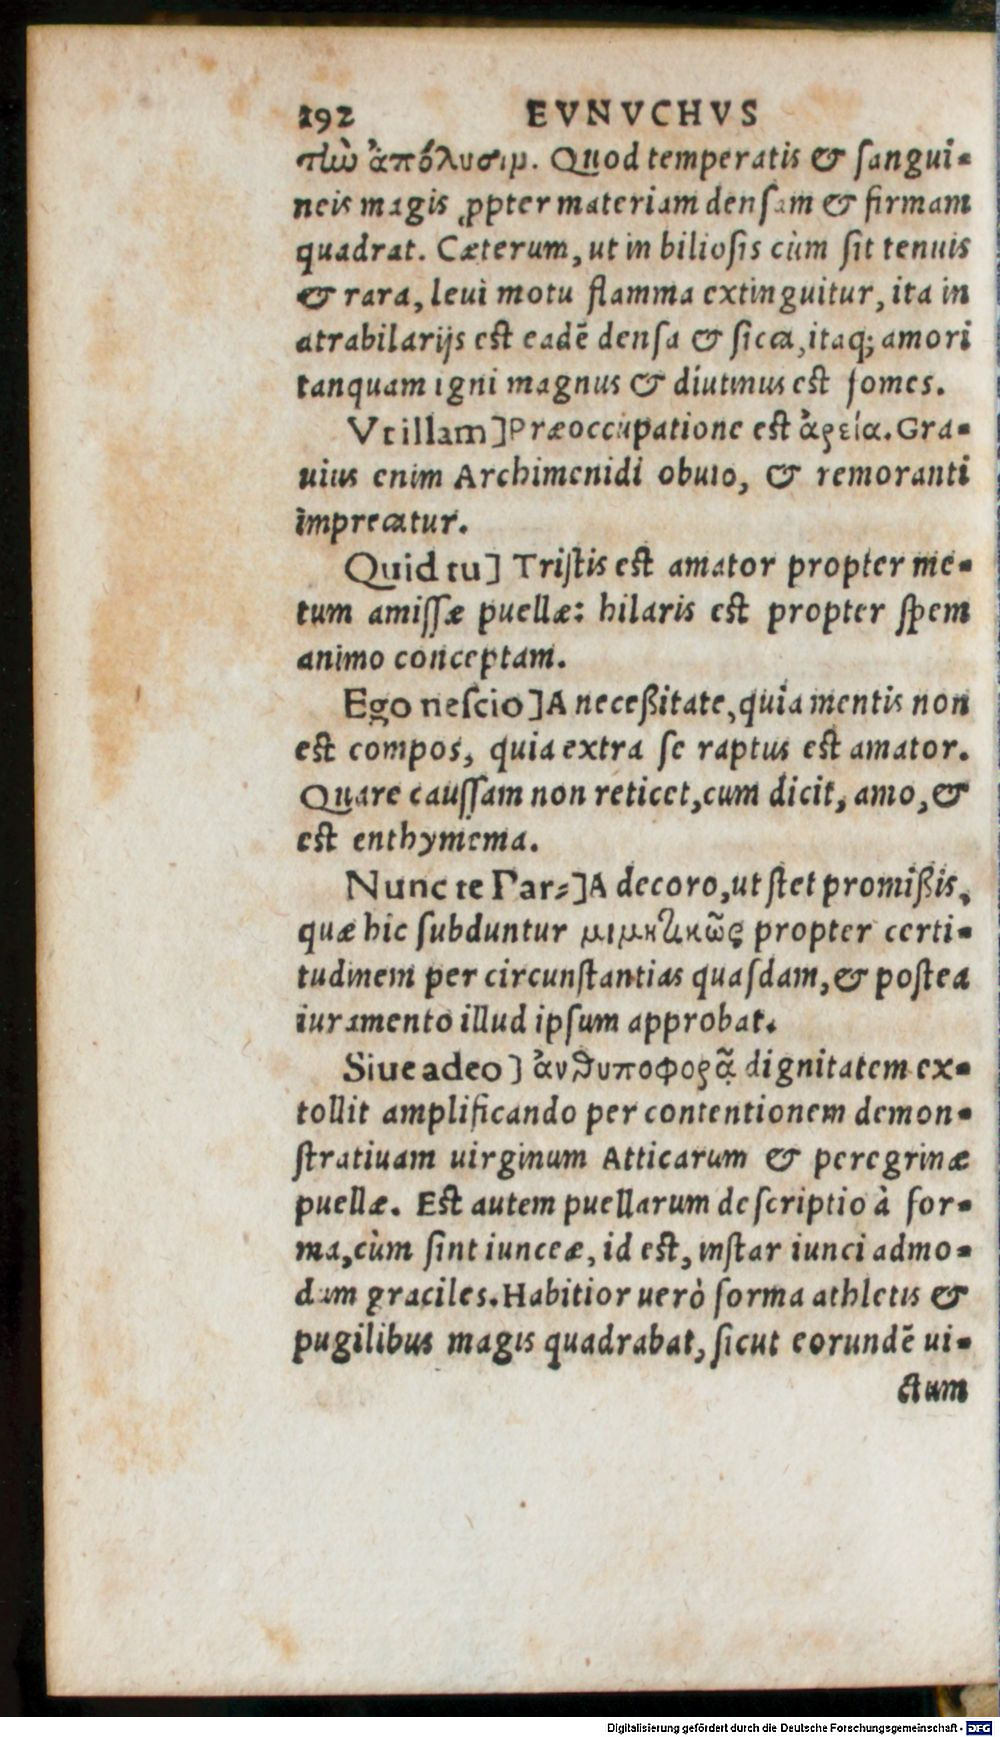 192 EVNVCHVS
τὴν ἀπόλυσιμ. Quod temperatis & sangui-
neis magis ꝓpter materiam densam & firmam
quadrat. Cæterum, ut in biliosis cùm sit tenuis
& rara, leui motu flamma extinguitur, ita in
atrabilarijs est eadē densa & sicca, itaq; amori
tanquam igni magnus & diutinus est fomes.
Vt illam] Præoccupatione est ἀρεία. Gra-
uius enim Archimenidi obuio, & remoranti
imprecatur.
Quid tu] Tristis est amator propter me-
tum amissæ puellæ: hilaris est propter spem
animo conceptam.
Ego nescio] A necessitate, quia mentis non
est compos, quia extra se raptus est amator.
Quare caussam non reticet, cum dicit, amo, &
est enthymema.
Nunc te Par-] A decoro, ut stet promissis,
quæ hic subduntur μιμητικῶς propter certi-
tudinem per circunstantias quasdam, & postea
iuramento illud ipsum approbat.
Siue adeo] ἀνθυποφορᾷ dignitatem ex-
tollit amplificando per contentionem demon-
stratiuam uirginum Atticarum & peregrinæ
puellæ. Est autem puellarum descriptio à for-
ma, cùm sint iunceæ, id est, instar iunci admo-
dum graciles. Habitior uerò forma athletis &
pugilibus magis quadrabat, sicut eorundē ui-
ctum
Digitalisierung gefördert durch die Deutsche Forschungsgemeinschaft - DFG